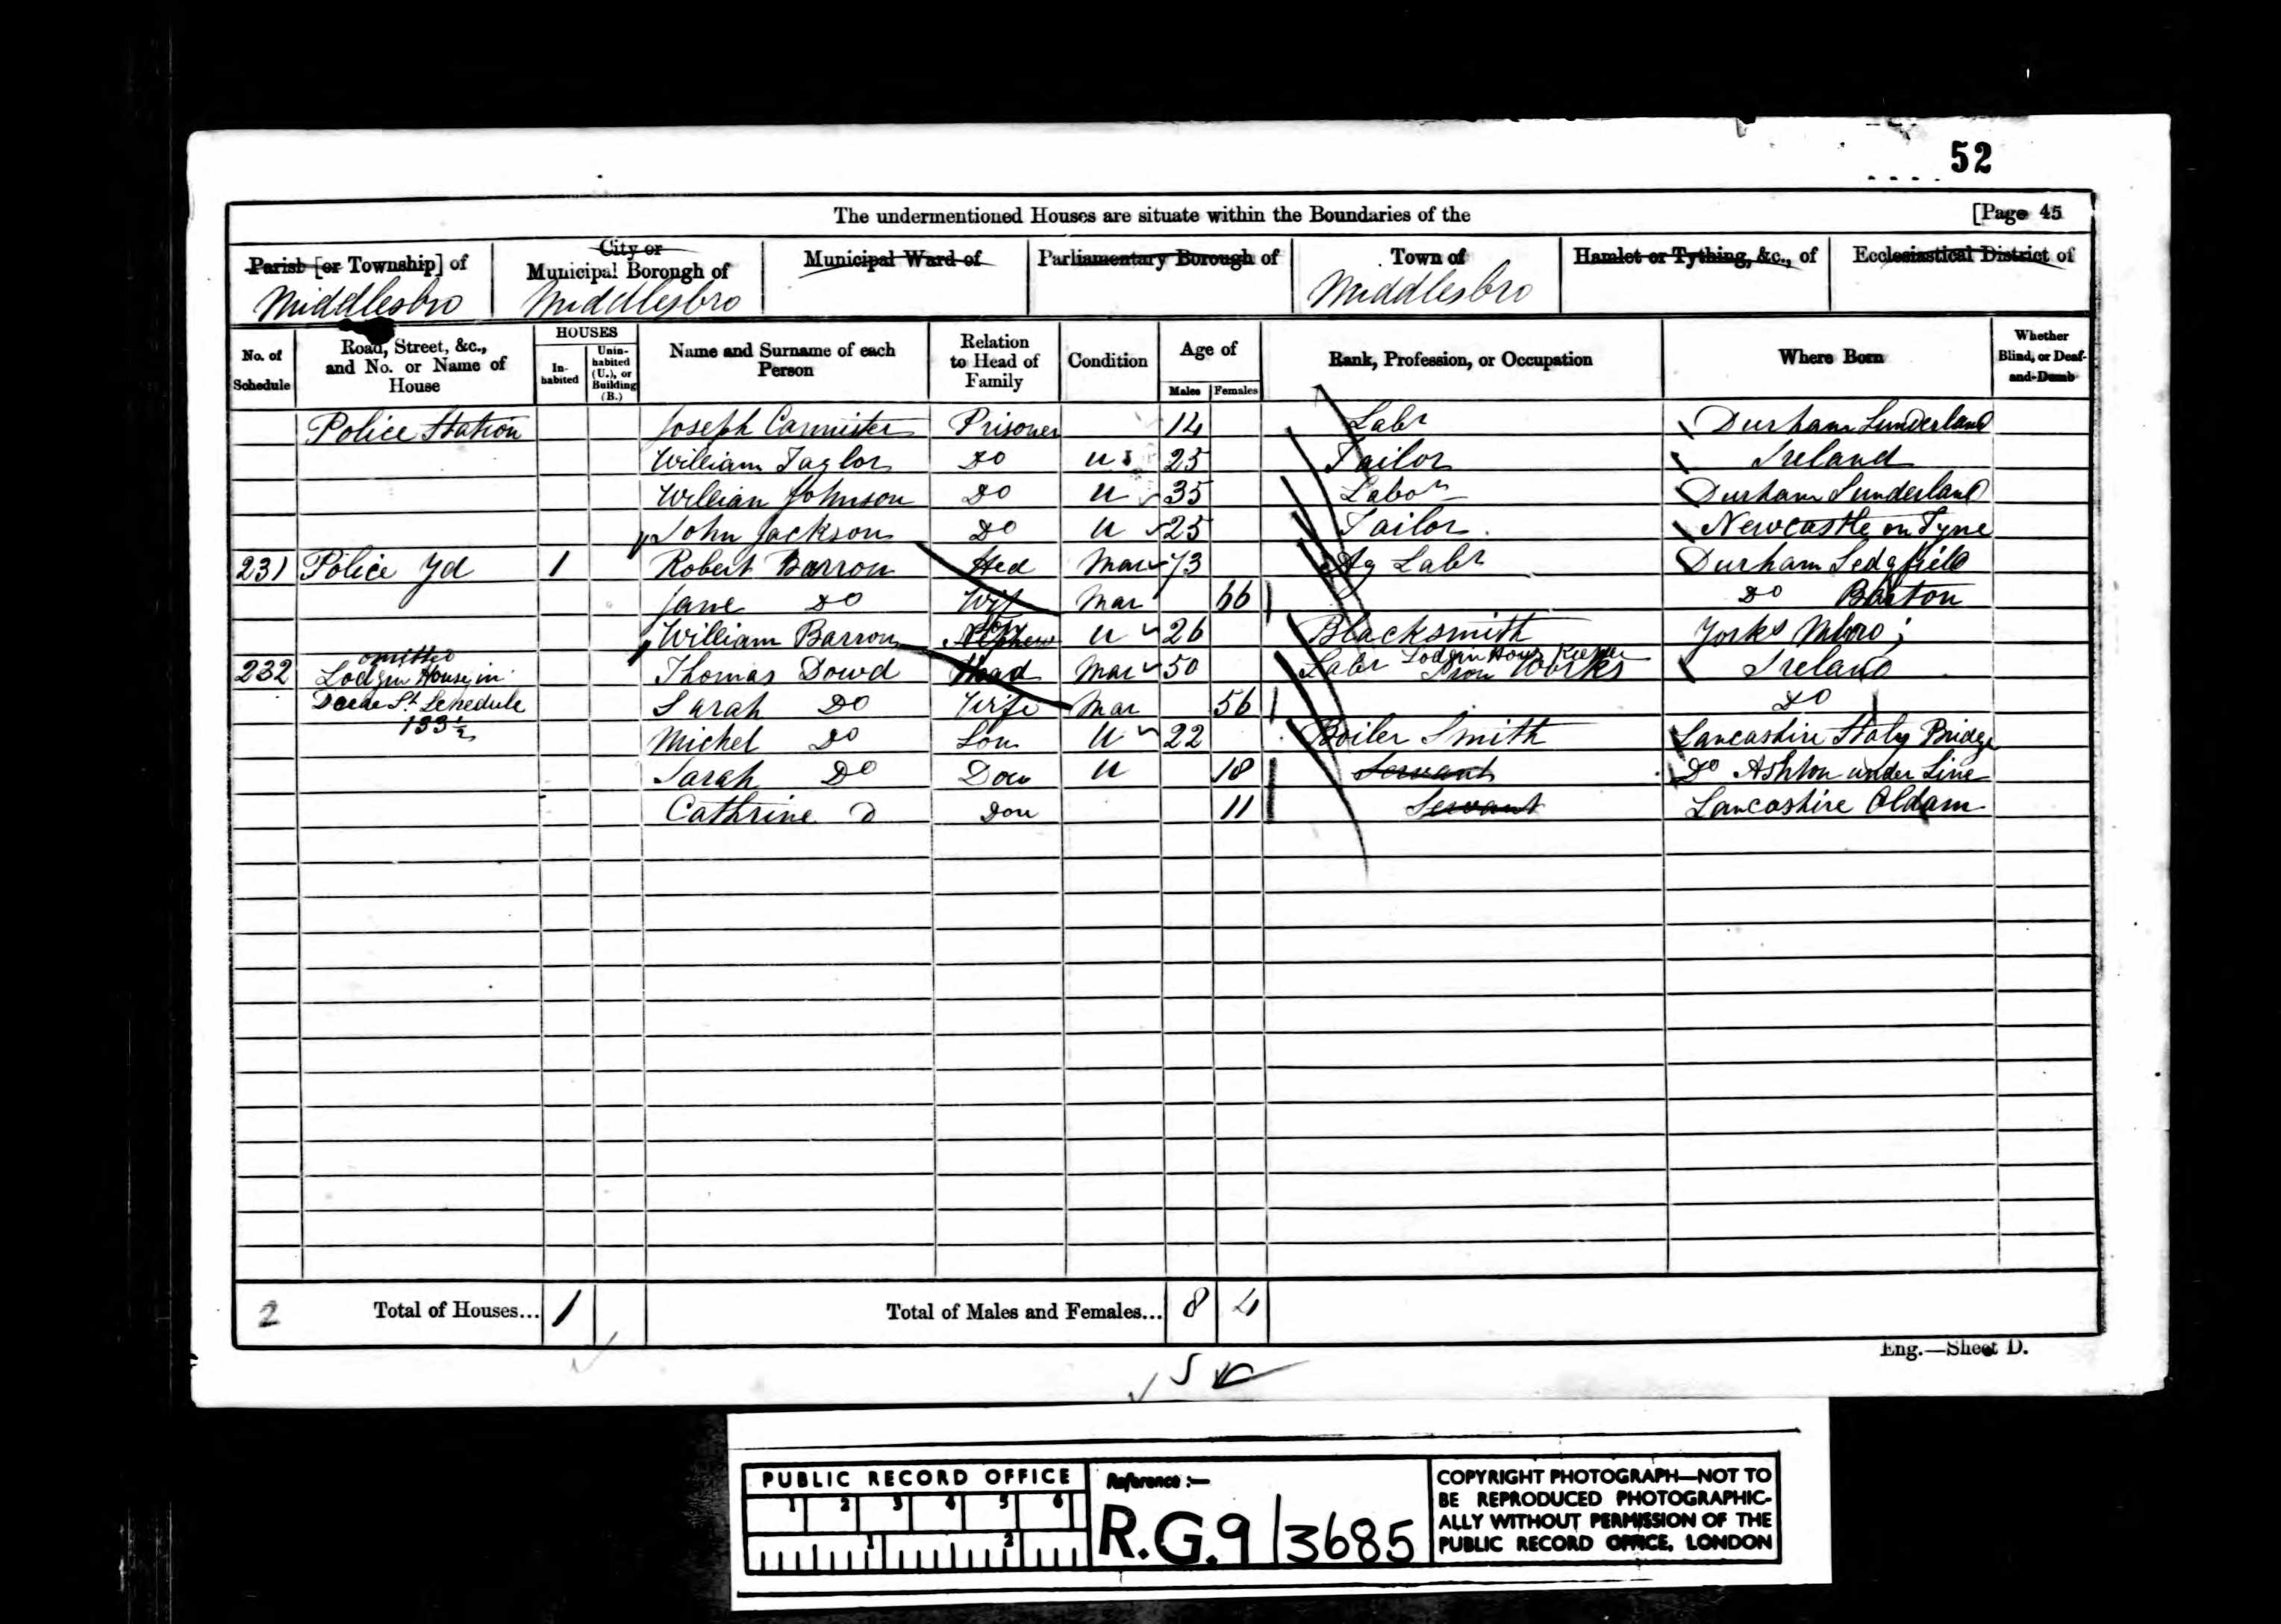 52
The undermentioned Houses are situate within the Boundaries of the [Page 45
Parish [or Township] of Middlesbro
City or Municipal Borough of Middlesbro
Municipal Ward of
Parliamentary Borough of
Town of Middlesbro
Hamlet or Tything, &c., of
Ecclesiastical District of
No. of Schedule
Road, Street, &c., and No. or Name of House
HOUSES
In-habited
Unin-habited (U.), or Building (B.)
Name and Surname of each Person
Relation to Head of Family
Condition
Age of
Males Females
Rank, Profession, or Occupation
Where Born
Whether Blind, or Deaf-and-Dumb
Police Station Joseph Cannister Prisoner 14 Labr Durham Sunderland
William Taylor Do U 25 Tailor Ireland
William Johnson Do U 35 Labor Durham Sunderland
John Jackson Do U 25 Tailor Newcastle on Tyne
231 Police Yd 1 Robert Barron Hed Mar 73 Ag Labr Durham Sedgfield
Jane Do Wif Mar 66 Do Barton
William Barron Son Nephew U 26 Blacksmith Yorks Mbro
232 omitted Lodgin House in Thomas Dowd Head Mar 50 Labr Iron Works Lodgin House Keeper Ireland
St Schedule Sarah Do Wife Mar 56 Do
133½ Michel Do Son U 22 Boiler Smith Lancashire Staly Bridge
Sarah Do Dow U 18 Servant Do Ashton under Line
Cathrine D Dou 11 Servant Lancashire Oldam
2 Total of Houses... 1 Total of Males and Females... 8 4
Eng.—Sheet D.
PUBLIC RECORD OFFICE
1 2 3 4 5 6
1 2
Reference :—
R.G.9/3685
COPYRIGHT PHOTOGRAPH—NOT TO
BE REPRODUCED PHOTOGRAPHIC-
ALLY WITHOUT PERMISSION OF THE
PUBLIC RECORD OFFICE, LONDON